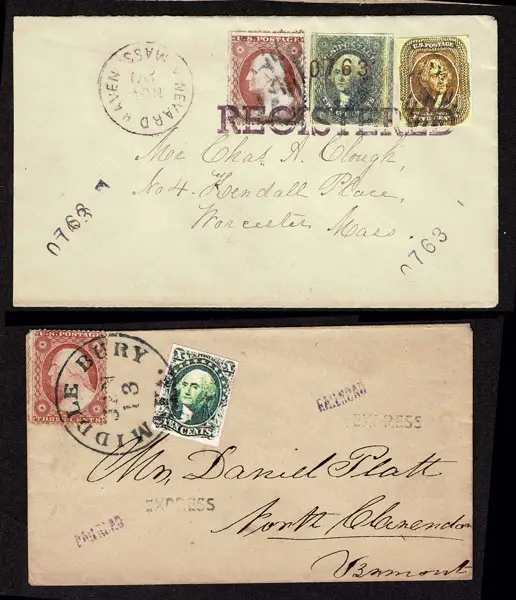 VINEYARD HAVEN
MASS.
NOV
U.S. POSTAGE
U.S. POSTAGE
0763
REGISTERED
Mr Chas. A. Clough,
No 4. Kendall Place,
Worcester Mass.
0763
0763
U.S. POSTAGE
THREE CENTS
MIDDLEBURY
13
TEN CENTS
RAILROAD
EXPRESS
Mr. Daniel Platt
North Clarendon
Vermont
EXPRESS
RAILROAD